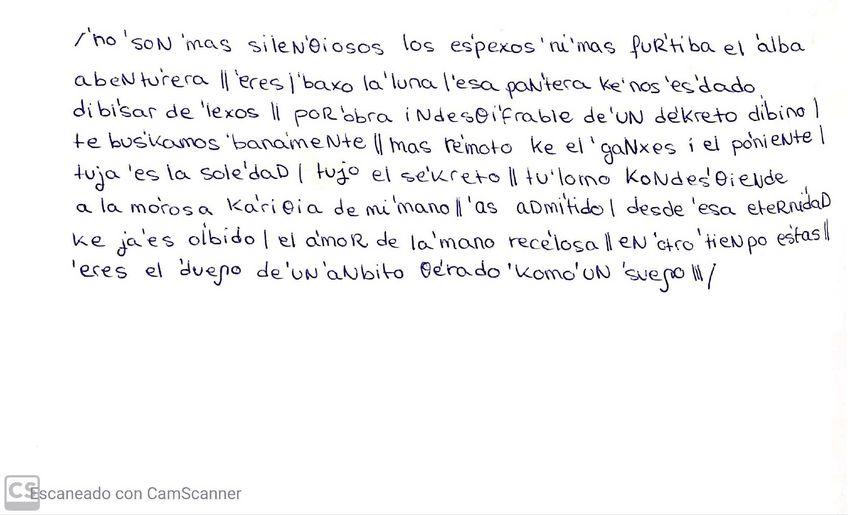 /'no 'soN 'mas sileN'θiosos los es'pexos 'ni 'mas fuR'tiba el 'alba
abeNtu'rera || 'eres | 'baxo la 'luna | 'esa paN'tera ke 'nos 'es 'dado
dibi'sar de 'lexos || poR 'obra iNdesθi'frable de 'uN de'kreto di'bino |
te bus'kamos 'bana'meNte || 'mas re'moto ke el 'gaNxes i el po'nieNte |
'tuja 'es la sole'daD | 'tujo el se'kreto || tu 'lomo koNdes'θieNde
a la mo'rosa ka'riθia de mi 'mano || 'as aDmi'tido | desde 'esa eteRni'daD
ke ja 'es ol'bido | el a'moR de la 'mano rece'losa || eN 'otro 'tieNpo es'tas ||
'eres el 'dueɲo de 'uN 'aNbito θe'rado 'komo 'uN 'sueɲo ||| /
CS Escaneado con CamScanner